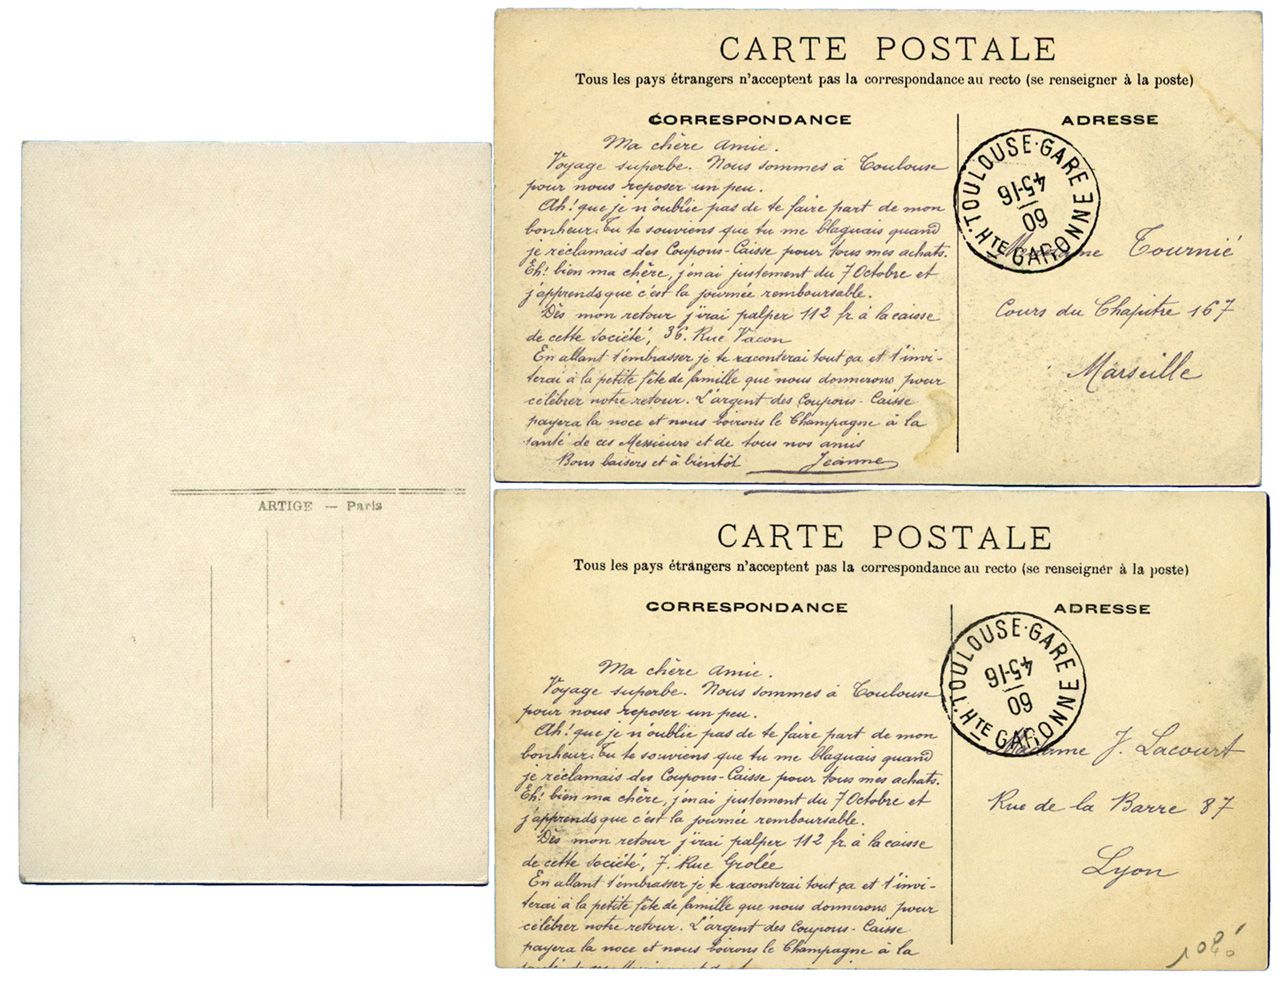 ARTIGE — Paris
CARTE POSTALE
Tous les pays étrangers n'acceptent pas la correspondance au recto (se renseigner à la poste)
CORRESPONDANCE
Ma chère amie.
Voyage superbe. Nous sommes à Toulouse
pour nous reposer un peu.
Ah! que je n'oublie pas de te faire part de mon
bonheur. Tu te souviens que tu me blaguais quand
je réclamais des Coupons-Caisse pour tous mes achats.
Eh! bien ma chère, j'en ai justement du 7 Octobre et
j'apprends que c'est la journée remboursable.
Dès mon retour j'irai palper 112 fr. à la caisse
de cette société, 36. Rue Vacon
En allant t'embrasser je te raconterai tout ça et t'invi-
terai à la petite fête de famille que nous donnerons pour
célébrer notre retour. L'argent des Coupons-Caisse
payera la noce et nous boirons le Champagne à la
santé de ces Messieurs et de tous nos amis
Bons baisers et à bientôt Jeanne
ADRESSE
TOULOUSE-GARE
45-16
09
HTE GARONNE
Madame Tournié
Cours du Chapitre 167
Marseille
CARTE POSTALE
Tous les pays étrangers n'acceptent pas la correspondance au recto (se renseigner à la poste)
CORRESPONDANCE
Ma chère amie.
Voyage superbe. Nous sommes à Toulouse
pour nous reposer un peu.
Ah! que je n'oublie pas de te faire part de mon
bonheur. Tu te souviens que tu me blaguais quand
je réclamais des Coupons-Caisse pour tous mes achats.
Eh! bien ma chère, j'en ai justement du 7 Octobre et
j'apprends que c'est la journée remboursable.
Dès mon retour j'irai palper 112 fr. à la caisse
de cette société, 7. Rue Grolée
En allant t'embrasser je te raconterai tout ça et t'invi-
terai à la petite fête de famille que nous donnerons pour
célébrer notre retour. L'argent des Coupons-Caisse
payera la noce et nous boirons le Champagne à la
ADRESSE
TOULOUSE-GARE
45-16
09
HTE GARONNE
Madame J. Lacourt
Rue de la Barre 87
Lyon